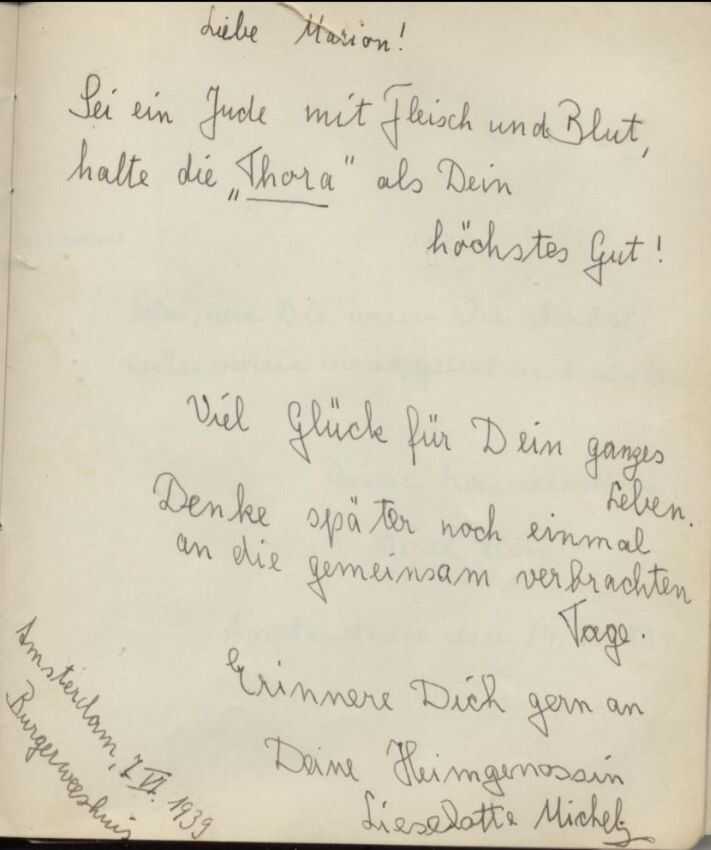 Liebe Marion!
Sei ein Jude mit Fleisch und Blut,
halte die „Thora" als Dein
höchstes Gut!
Viel Glück für Dein ganzes
Leben.
Denke später noch einmal
an die gemeinsam verbrachten
Tage.
Erinnere Dich gern an
Deine Heimgenossin
Lieselotte Michels
Amsterdam, 7 VI. 1939
Burgerweeshuis